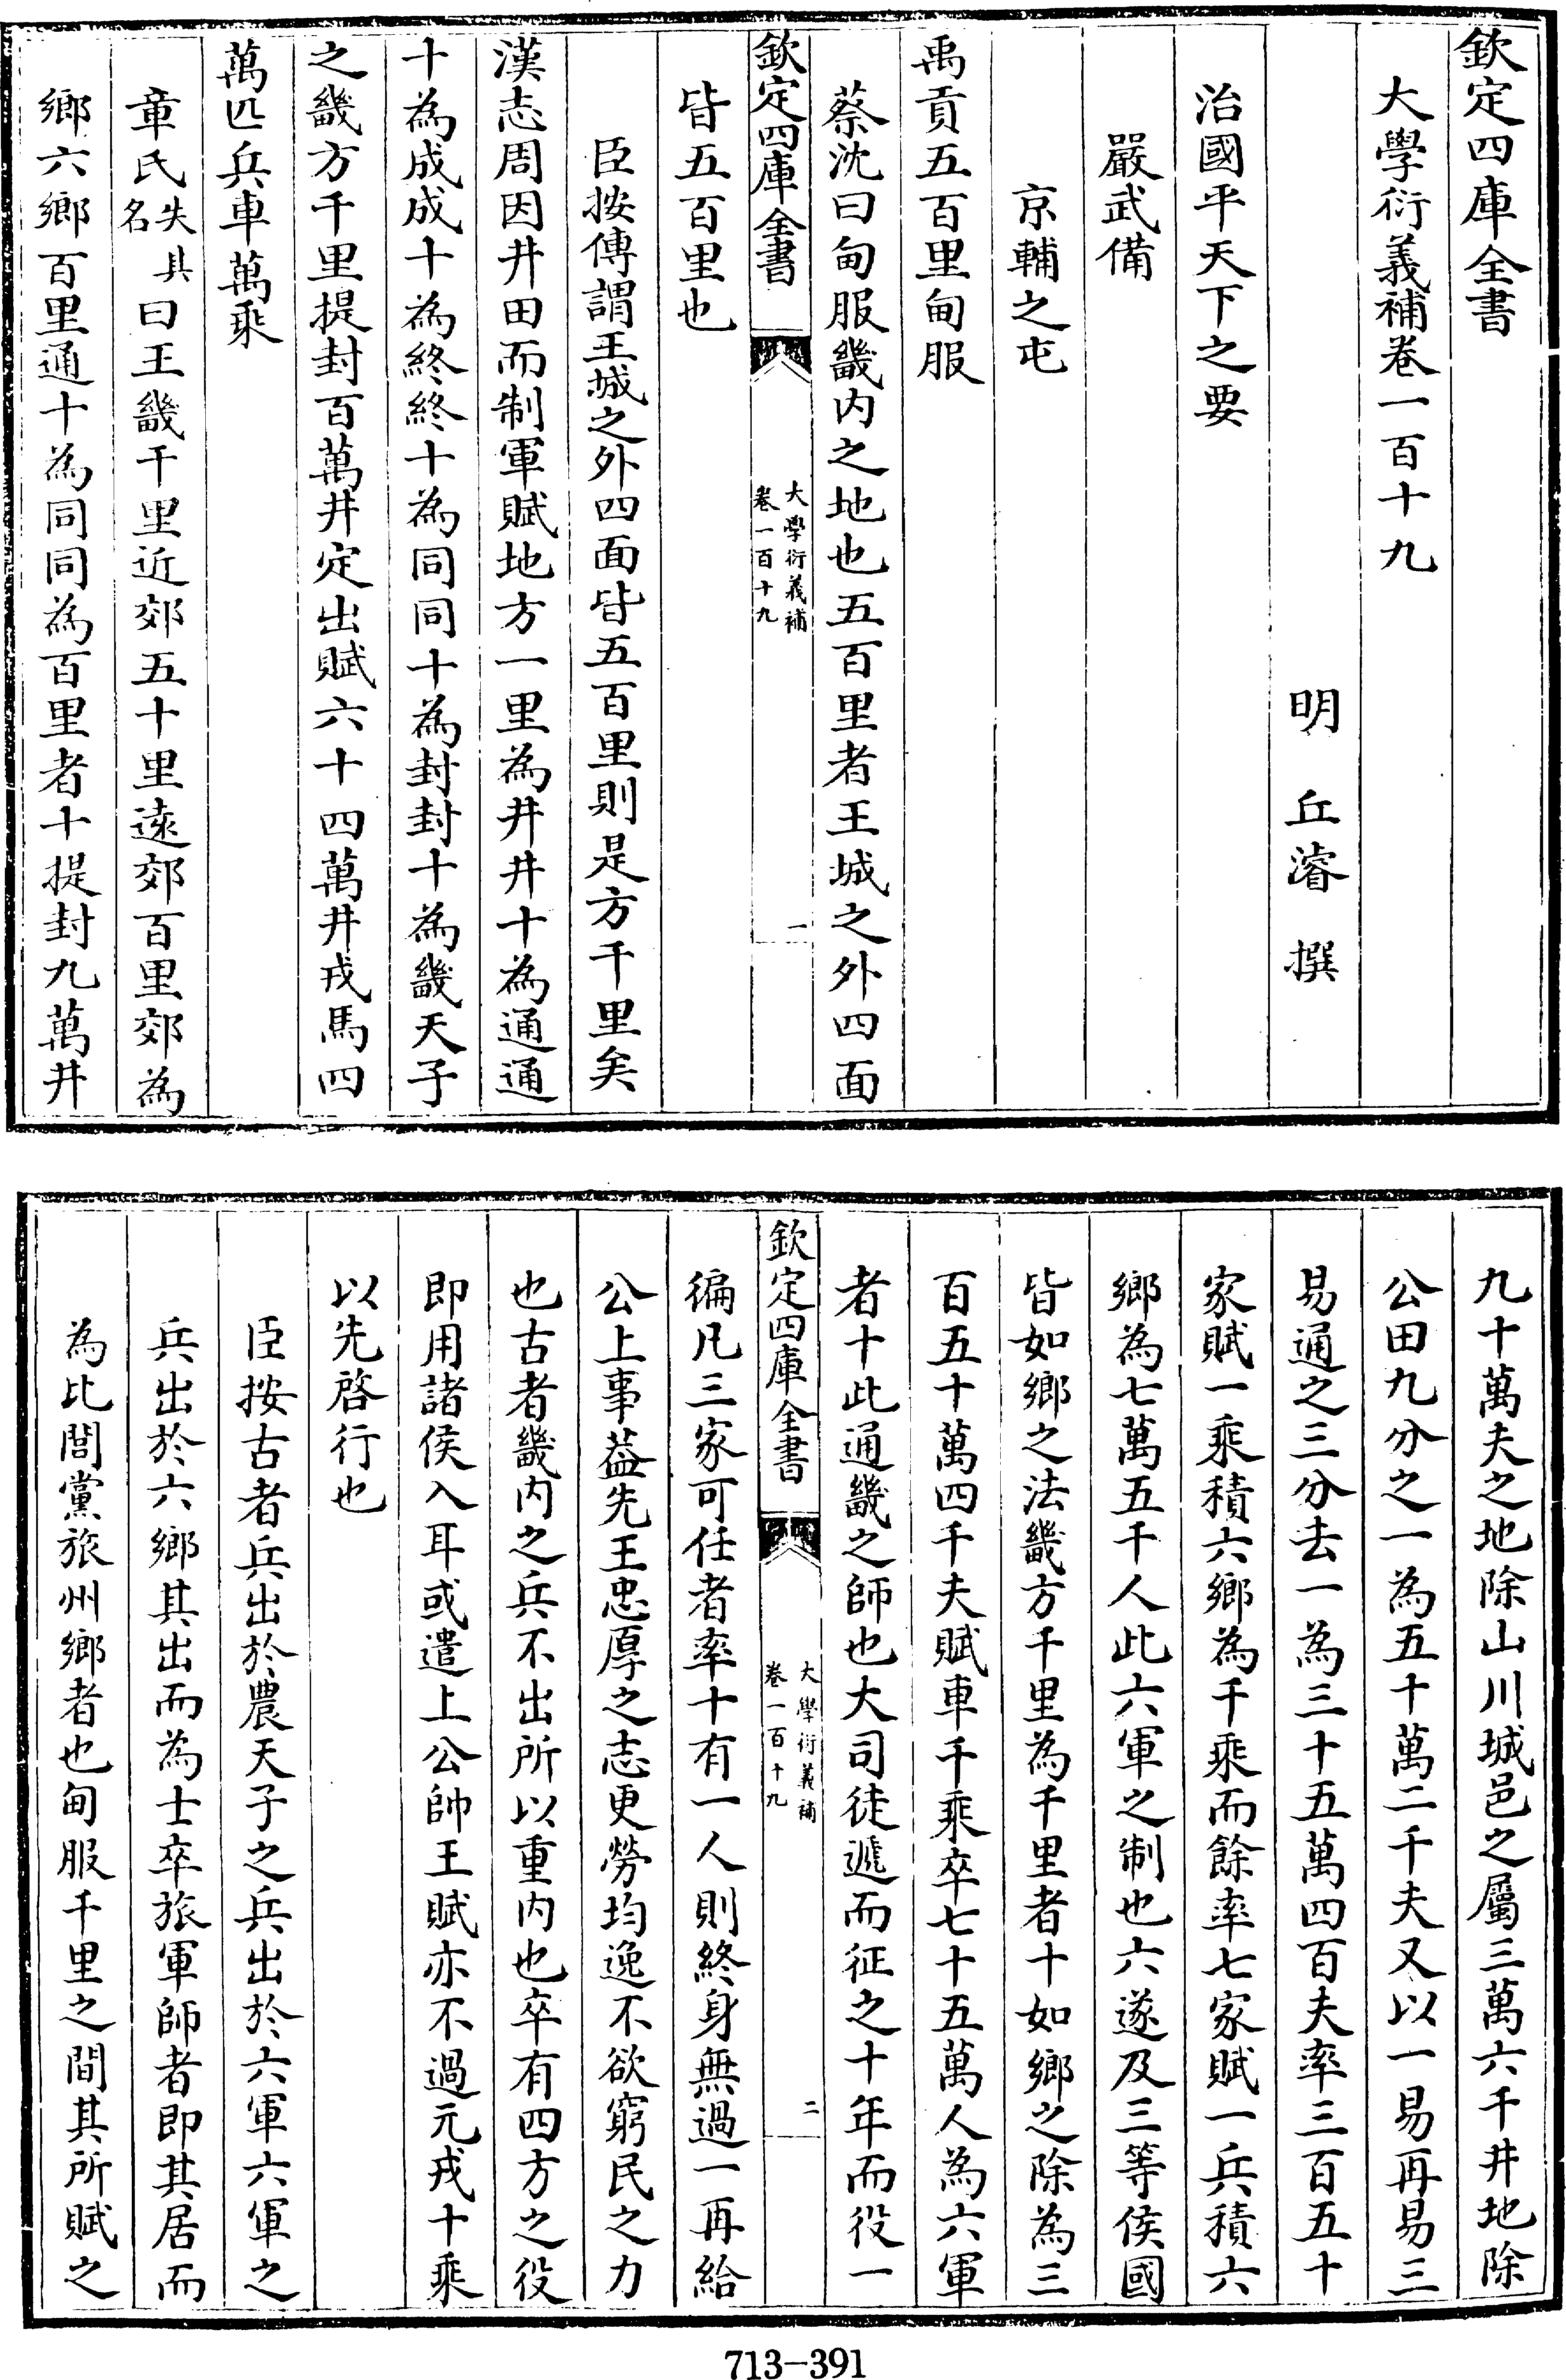 欽定四庫全書
大學衍義補卷一百十九
明　丘濬　撰
治國平天下之要
嚴武備
京輔之屯
禹貢五百里甸服
蔡沈曰甸服畿内之地也五百里者王城之外四面
欽定四庫全書
大學衍義補
卷一百十九
一
皆五百里也
臣按傳謂王城之外四面皆五百里則是方千里矣
漢志周因井田而制軍賦地方一里為井井十為通通
十為成成十為終終十為同同十為封封十為畿天子
之畿方千里提封百萬井定出賦六十四萬井戎馬四
萬匹兵車萬乘
章氏失其名曰王畿千里近郊五十里遠郊百里郊為
鄉六鄉百里通十為同同為百里者十提封九萬井
九十萬夫之地除山川城邑之屬三萬六千井地除
公田九分之一為五十萬二千夫又以一易再易三
易通之三分去一為三十五萬四百夫率三百五十
家賦一乘積六鄉為千乘而餘率七家賦一兵積六
鄉為七萬五千人此六軍之制也六遂及三等侯國
皆如鄉之法畿方千里為千里者十如鄉之除為三
百五十萬四千夫賦車千乘卒七十五萬人為六軍
者十此通畿之師也大司徒遞而征之十年而役一
欽定四庫全書
大學衍義補
卷一百十九
二
徧凡三家可任者率十有一人則終身無過一再給
公上事益先王忠厚之志更勞均逸不欲窮民之力
也古者畿内之兵不出所以重内也卒有四方之役
即用諸侯入耳或遣上公帥王賦亦不過元戎十乘
以先啓行也
臣按古者兵出於農天子之兵出於六軍六軍之
兵出於六鄉其出而為士卒旅軍師者即其居而
為比閭黨旅州鄉者也甸服千里之間其所賦之
713-391